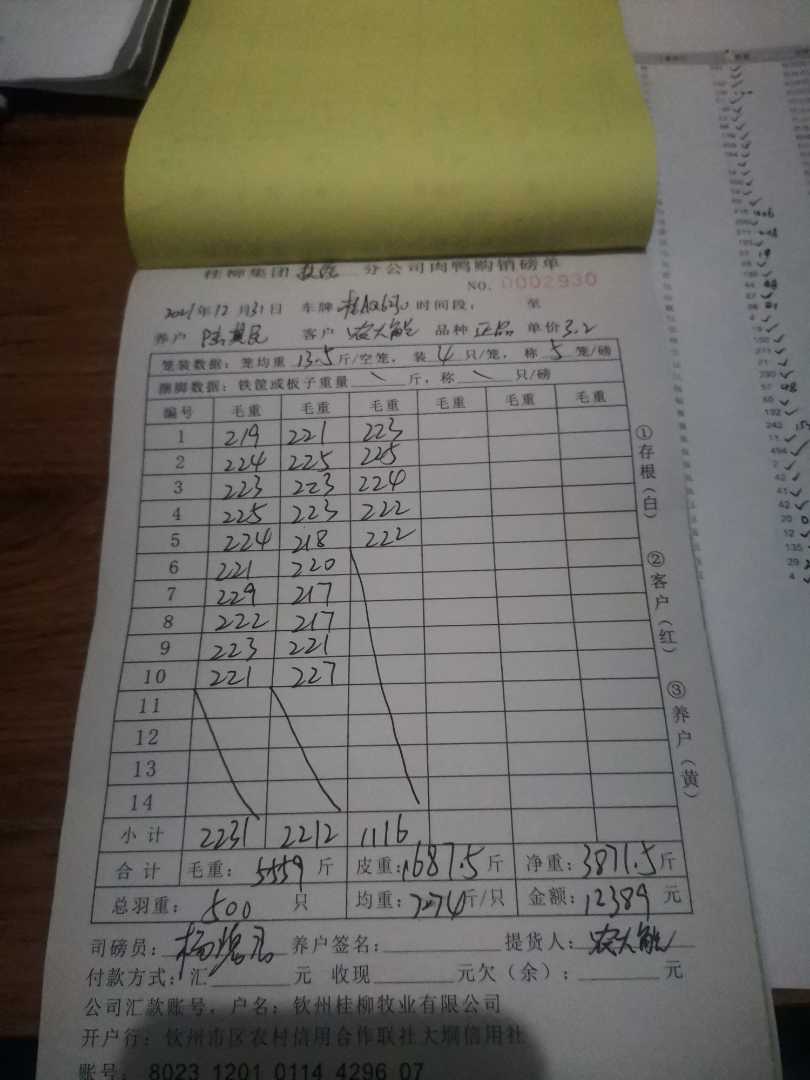 桂柳集团 分公司肉鸭购销磅单
NO. 0002930
2021年12月31日 车牌 时间段: 至
养户 客户 农大能 品种 正品 单价3.2
笼装数据: 笼均重 13.5 斤/空笼, 装 4 只/笼, 称 5 笼/磅
捆脚数据: 铁筐或板子重量 \ 斤, 称 \ 只/磅
编号 毛重 毛重 毛重 毛重 毛重 毛重
1 219 221 223
2 224 225 225
3 223 223 224
4 225 223 222
5 224 218 222
6 221 220
7 229 217
8 222 217
9 223 221
10 221 227
11
12
13
14
小计 2231 2212 1116
合计 毛重: 5559 斤 皮重: 1687.5 斤 净重: 3871.5 斤
总羽重: 500 只 均重: 7.74 斤/只 金额: 12389 元
司磅员: 养户签名: 提货人: 农大能
付款方式: 汇 元 收现 元欠(余): 元
公司汇款账号, 户名: 钦州桂柳牧业有限公司
开户行: 钦州市区农村信用合作联社大垌信用社
账号: 8023 1201 0114 4296 07
①存根(白)
②客户(红)
③养户(黄)